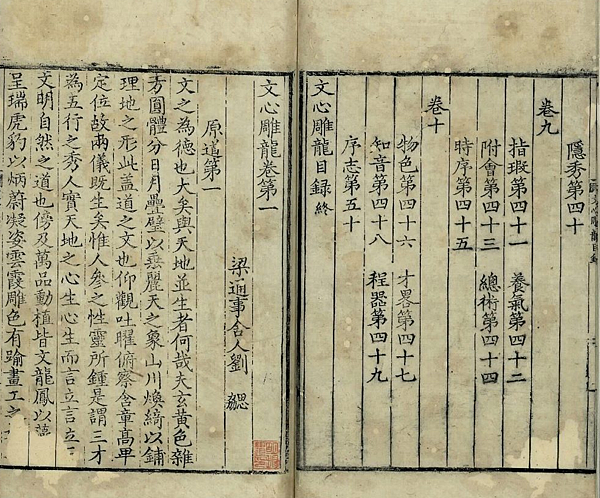 隱秀第四十
卷九
指瑕第四十一　養氣第四十二
附會第四十三　總術第四十四
時序第四十五
卷十
物色第四十六　才畧第四十七
知音第四十八　程器第四十九
序志第五十
文心雕龍目録終
文心雕龍卷第一
梁通事舍人劉　勰
原道第一
文之為德也大矣與天地並生者何哉夫玄黃色雜
方圓體分日月疊璧以垂麗天之象山川煥綺以鋪
理地之形此盖道之文也仰觀吐曜俯察含章髙卑
定位故兩儀既生矣惟人參之性靈所鍾是謂三才
為五行之秀人實天地之心生心生而言立言立
文明自然之道也傍及萬品動植皆文龍鳳以
呈瑞虎豹以炳蔚凝姿雲霞雕色有踰畫工之